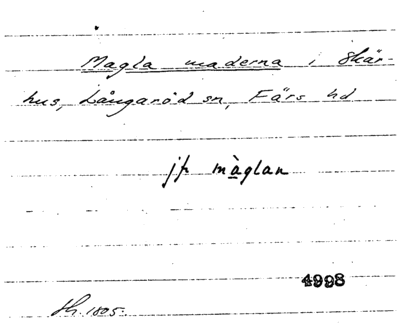 Magla maderna i Skär-
hus, Långaröd sn, Färs hd
jfr màglan
4998
Sk. 1805.